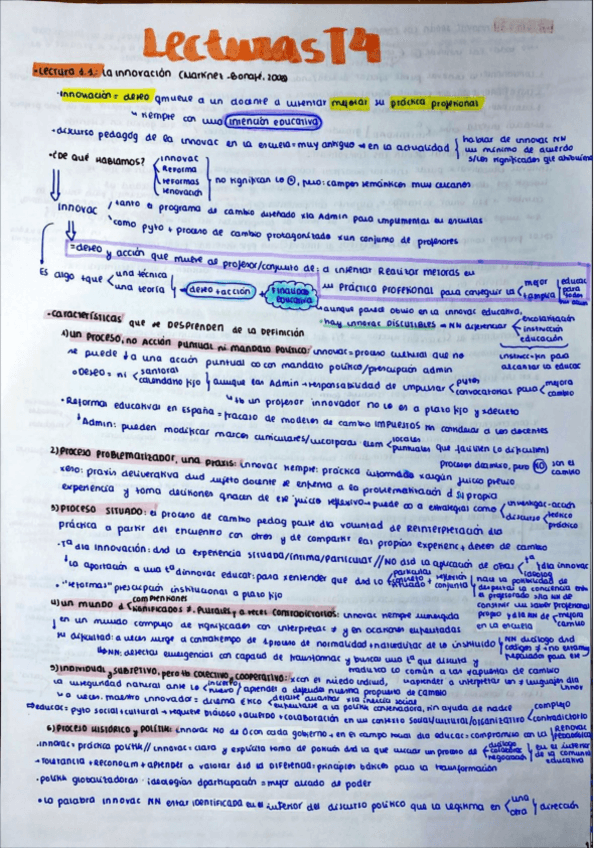 Lecturas T4
-Lectura 1.1: La innovación (Martínez-Bonafé, 2008)
-Innovación = deseo q mueve a un docente a intentar mejorar su práctica profesional
siempre con una intención educativa
-Discurso pedagóg de la innovac en la escuela = muy antiguo → en la actualidad
hablar de innovac NN
un mínimo de acuerdo
s/los significados que
-¿De qué hablamos?
innovac
Reforma
reformas
renovación
no significan lo =, pero: campos semánticos muy cercanos
Innovac
tanto a programa de cambio diseñado x la Admin para implementar en escuelas
como pyto + proceso de cambio protagonizado x un conjunto de profesores
= deseo y acción que mueve al profesor/conjunto de: a intentar realizar mejoras en
su Práctica Profesional para conseguir la
mejor
educac
para
todos
Es algo + que
una técnica
una teoría
deseo + acción
+ finalidad educativa
aunque parezca obvio en la innovac educativa,
hay innovac discutibles → NN diferenciar
escolarización
instrucción
educación
-Características que se desprenden de la definición
1) Un proceso, no acción puntual ni mandato político: innovac = proceso cultural que no
se puede a una acción puntual o con mandato político/prescripción admin
Deseo = ni
santoral
calendario fijo
aunque las Admin → responsabilidad de impulsar
pytos
convocatorias
para
mejora
cambio
un profesor innovador no lo es a plazo fijo y x decreto
-Reformas educativas en España = fracaso de modelos de cambio impuestos sin considerar a los docentes
Admin: pueden modificar marcos curriculares/incorporar elem
locales
puntuales
que faciliten (o dificulten)
procesos de cambio, pero NO son el
cambio
2) Proceso problematizador, una praxis: innovac siempre: práctica informada x algún juicio previo
esto: praxis deliberativa dnd sujeto docente se enfrenta a la problematización d su propia
experiencia y toma decisiones q nacen de ese juicio reflexivo → puede ir a estrategias como
investigac-acción
discurso
teórico
práctico
3) Proceso situado: el proceso de cambio pedag parte d la voluntad de reinterpretación d la
práctica a partir del encuentro con otros y de compartir las propias experienc + deseos de cambio
-Tª d la innovación: dnd la experiencia situada/íntima/particular // NO dnd la aplicación de otras
tª d la innovac
La aportación a una tª d innovac educat: para x entender que dnd lo
particular
concreto
situado
+
reflexión
conjunta
nace la posibilidad de
despertar la conciencia entre
el profesorado s/la NN de
construir un saber profesional
propio y d la NN de
mejora
cambio
en la escuela
-"reformas" = prescripción institucional a plazo fijo
4) Un mundo d
comprensiones
significados
≠, plurales y a veces contradictorios: innovac siempre sumergida
en un mundo complejo de significados con interpretac ≠ y en ocasiones enfrentadas
su dificultad: a veces surge a contratiempo de = proceso de normalidad + naturalizac de lo instituido
NN diálogo dnd
NN: detectar emergencias con capacid de transformac y buscar una tª que discuta y
traduzca lo común a las # apuestas de cambio
5) Individual y subjetivo, pero tb colectivo, cooperativo:
x con el miedo individ,
la inseguridad natural ante lo nuevo
aprender a defender nuestra propuesta de cambio
aprender a interpretar en # lenguajes d la
innov
a veces, maestro innovador: dilema ético
dejarse aquietar x la inercia social
enfrentarse a la postura conservadora, sin ayuda de nadie
⇒ educac = pyto social + cultural → requiere diálogo + acuerdo + colaboración en un contexto social/cultural/organizativo
complejo
contradictorio
6) Proceso histórico y político: innovac NO de 0 con cada gobierno → en el campo social d la educac = compromiso con la
Renovac
pedagógica
-innovac = práctica política // innovac = clara y explícita toma de posición dnd la que iniciar un proceso de
diálogo
negociación
en el interior
de la comunid
educativa
-tolerancia + reconocim + aprender a valorar dnd la diferencia: principios básicos para la transformación
-polítik globalizadoras = ideologías d participación = mejor aliado de poder
-La palabra innovac NN estar identificada en el interior del discurso político que la legitima en
una
otra
dirección